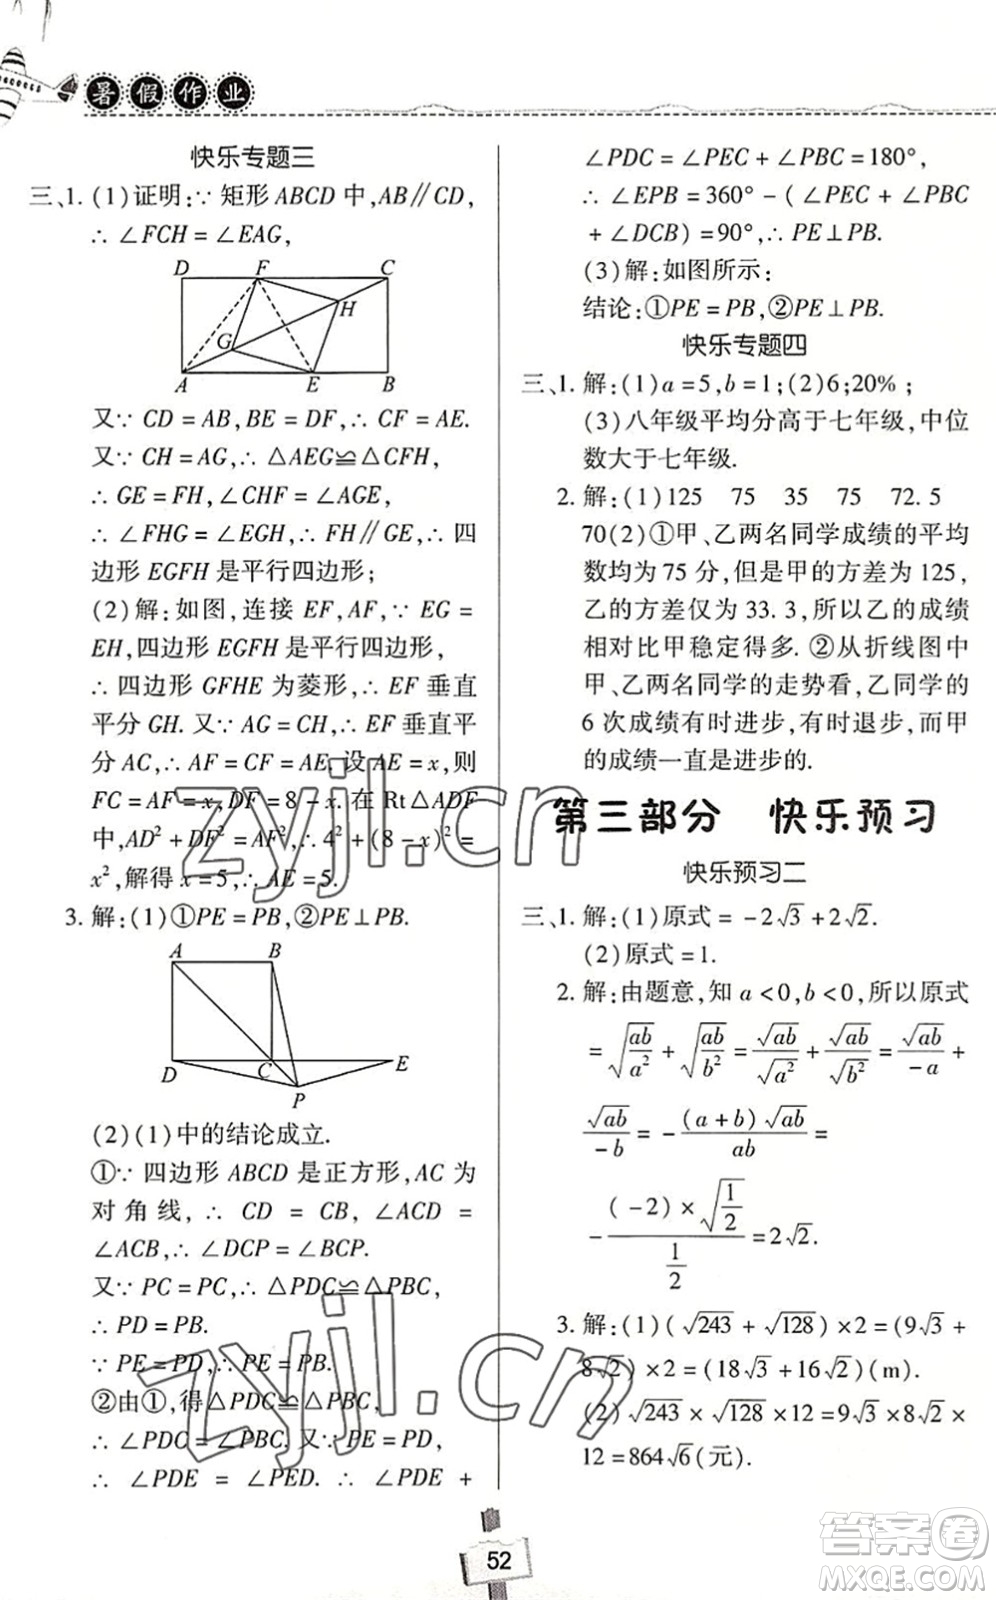 暑假作业
快乐专题三
三、1. (1)证明:∵ 矩形 ABCD 中,AB∥CD,
∴ ∠FCH = ∠EAG,
D F C
H
G
A E B
又∵ CD = AB,BE = DF,∴ CF = AE.
又∵ CH = AG,∴ △AEG≌△CFH,
∴ GE = FH,∠CHF = ∠AGE,
∴ ∠FHG = ∠EGH,∴ FH∥GE,∴ 四
边形 EGFH 是平行四边形;
(2)解:如图,连接 EF,AF,∵ EG =
EH,四边形 EGFH 是平行四边形,
∴ 四边形 GFHE 为菱形,∴ EF 垂直
平分 GH. 又∵ AG = CH,∴ EF 垂直平
分 AC,∴ AF = CF = AE. 设 AE = x,则
FC = AF = x,DF = 8 - x. 在 Rt△ADF
中,AD² + DF² = AF²,∴ 4² + (8 - x)² =
x²,解得 x = 5,∴ AE = 5.
3. 解:(1)①PE = PB,②PE⊥PB.
A B
D C E
P
(2)(1)中的结论成立.
①∵ 四边形 ABCD 是正方形,AC 为
对角线, ∴ CD = CB, ∠ACD =
∠ACB,∴ ∠DCP = ∠BCP.
又∵ PC = PC,∴ △PDC≌△PBC,
∴ PD = PB.
∵ PE = PD,∴ PE = PB.
②由①,得△PDC≌△PBC,
∴ ∠PDC = ∠PBC. 又∵ PE = PD,
∴ ∠PDE = ∠PED. ∴ ∠PDE +
∠PDC = ∠PEC + ∠PBC = 180°,
∴ ∠EPB = 360° - ( ∠PEC + ∠PBC
+ ∠DCB) = 90°,∴ PE⊥PB.
(3)解:如图所示:
结论:①PE = PB,②PE⊥PB.
快乐专题四
三、1. 解:(1)a = 5,b = 1;(2)6;20% ;
(3)八年级平均分高于七年级,中位
数大于七年级.
2. 解:(1)125 75 35 75 72. 5
70(2)①甲、乙两名同学成绩的平均
数均为 75 分,但是甲的方差为 125,
乙的方差仅为 33. 3,所以乙的成绩
相对比甲稳定得多. ②从折线图中
甲、乙两名同学的走势看,乙同学的
6 次成绩有时进步,有时退步,而甲
的成绩一直是进步的.
第三部分 快乐预习
快乐预习二
三、1. 解:(1)原式 = -2√3 + 2√2.
(2)原式 = 1.
2. 解:由题意,知 a < 0,b < 0,所以原式
= √(ab/a²) + √(ab/b²) = √ab/√a² + √ab/√b² = √ab/-a +
√ab/-b = - (a + b)√ab/ab =
- (-2) × √(1/2) / (1/2) = 2√2.
3. 解:(1)(√243 + √128) ×2 = (9√3 +
8√2) ×2 = (18√3 + 16√2)(m).
(2)√243 × √128 × 12 = 9√3 × 8√2 ×
12 = 864√6(元).
zyjl.cn
zyjl.cn
52
答案圈
MXQE.COM